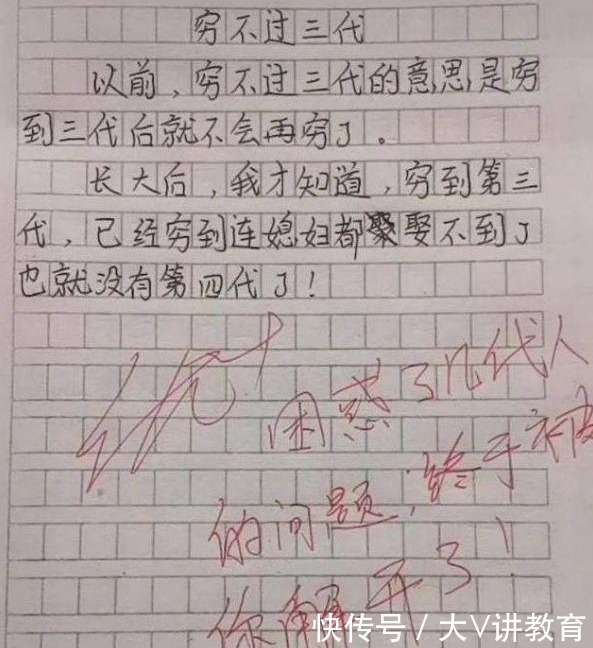 穷不过三代
以前，穷不过三代的意思是穷
到三代后就不会再穷了。
长大后，我才知道，穷到第三
代，已经穷到连媳妇都娶不到了
也就没有第四代了！
优+
困惑了几代人
的问题，终于被
你解开了！
快传号／大V讲教育